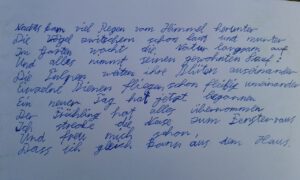 Nachts kam viel Regen vom Himmel herunter
Die Vögel zwitschern schon laut und munter
Im Garten wacht die Natur langsam auf
Und alles nimmt seinen gewohnten Lauf!
Die ihre Blüten auseinander
Bienen fliegen schon fleißig
Ein neuer Tag hat jetzt begonnen
Der Frühling hat alles übernommen
Ich strecke die Nase zum Fenster raus
Und freu mich schon,
dass ich gleich aus dem Haus.